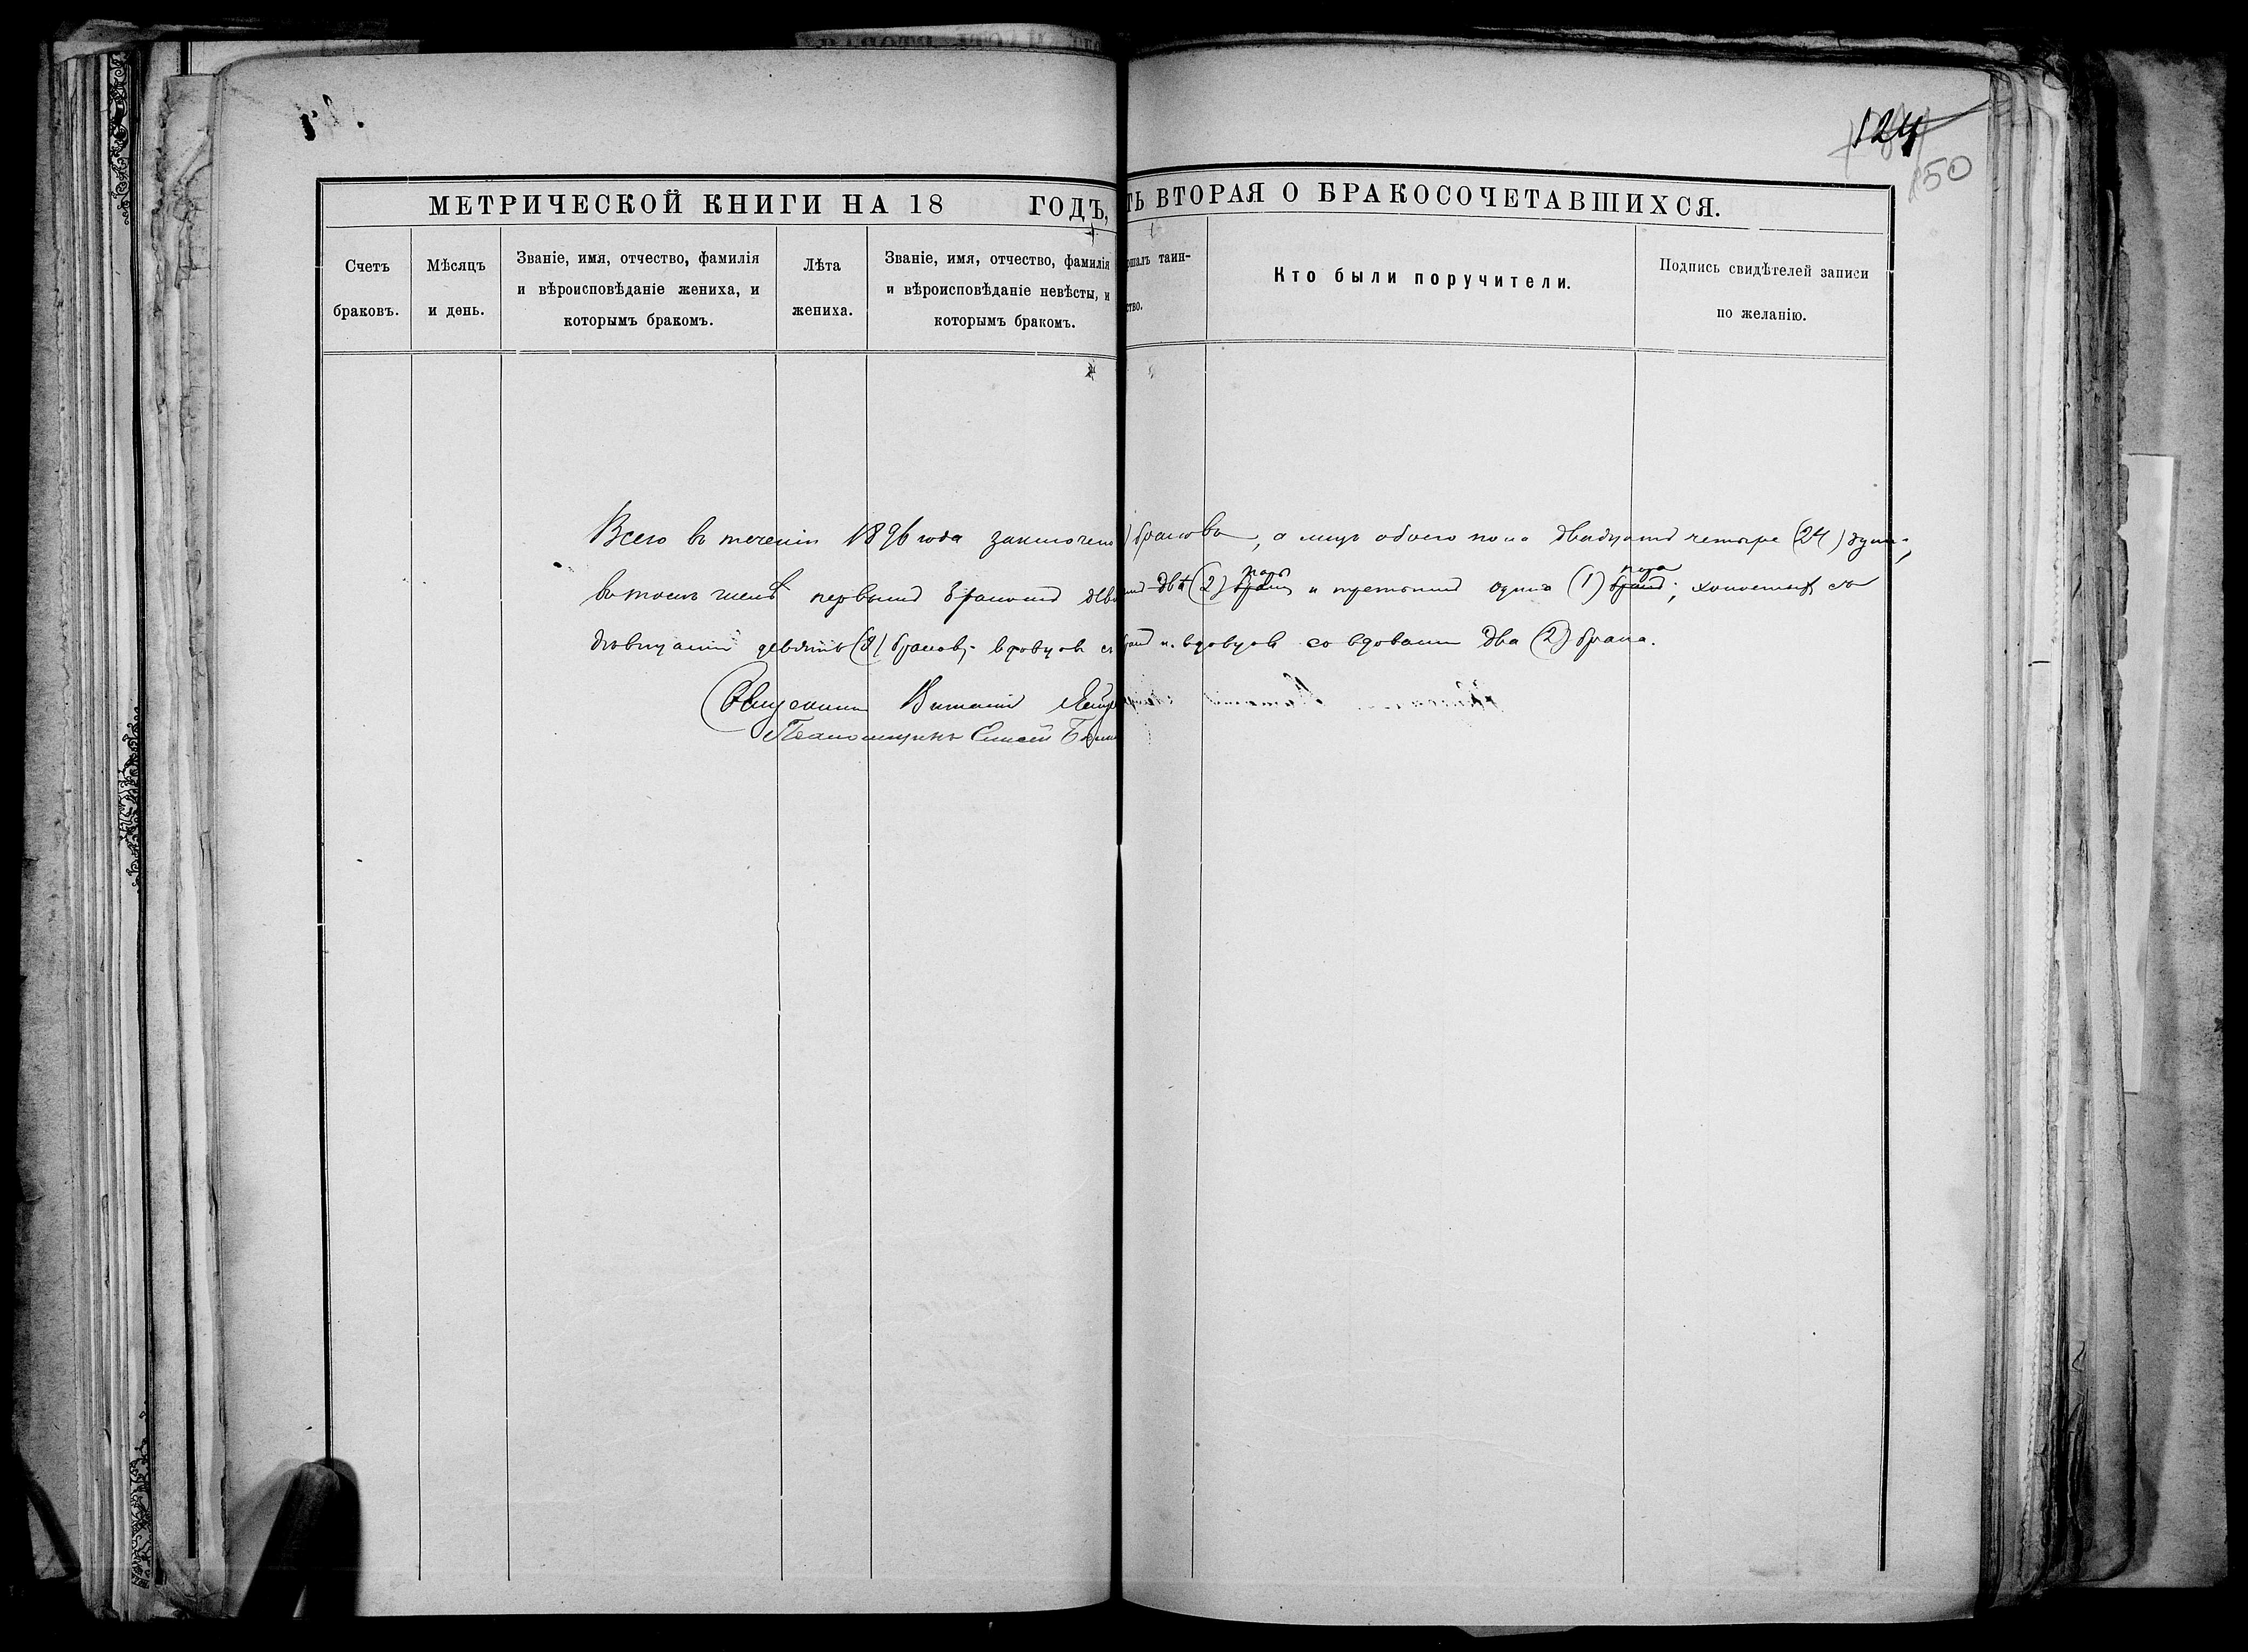 124
150
МЕТРИЧЕСКОЙ КНИГИ НА 18 ГОДЪ, ТЬ ВТОРАЯ О БРАКОСОЧЕТАВШИХСЯ.
Счетъ браковъ.
Мѣсяцъ и день.
Званіе, имя, отчество, фамилія
и вѣроисповѣданіе жениха, и
которымъ бракомъ.
Лѣта жениха.
Званіе, имя, отчество, фамилія
и вѣроисповѣданіе невѣсты, и
которымъ бракомъ.
ршалъ таин-
ство.
Кто были поручители.
Подпись свидѣтелей записи
по желанію.
Всего въ теченіи 1896 года заключено ) браковъ, а лицъ обоего пола двадцать четыре (24) душ
въ томъ числѣ первымъ бракомъ двѣ (2) пары и третьимъ одна (1) пара; холостых съ
дѣвицами девять (9) браковъ; вдовцов с и вдовцов со вдовами два (2) брака.
Священник Виталій
Псаломщикъ Елисей